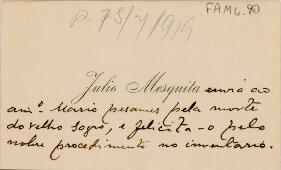 FAM6-90
P 75/7/919
Julio Mesquita envia ao
amº. Mario pesames pela morte
do velho sogro, e felicita-o pelo
nobre procedimento no inventario.